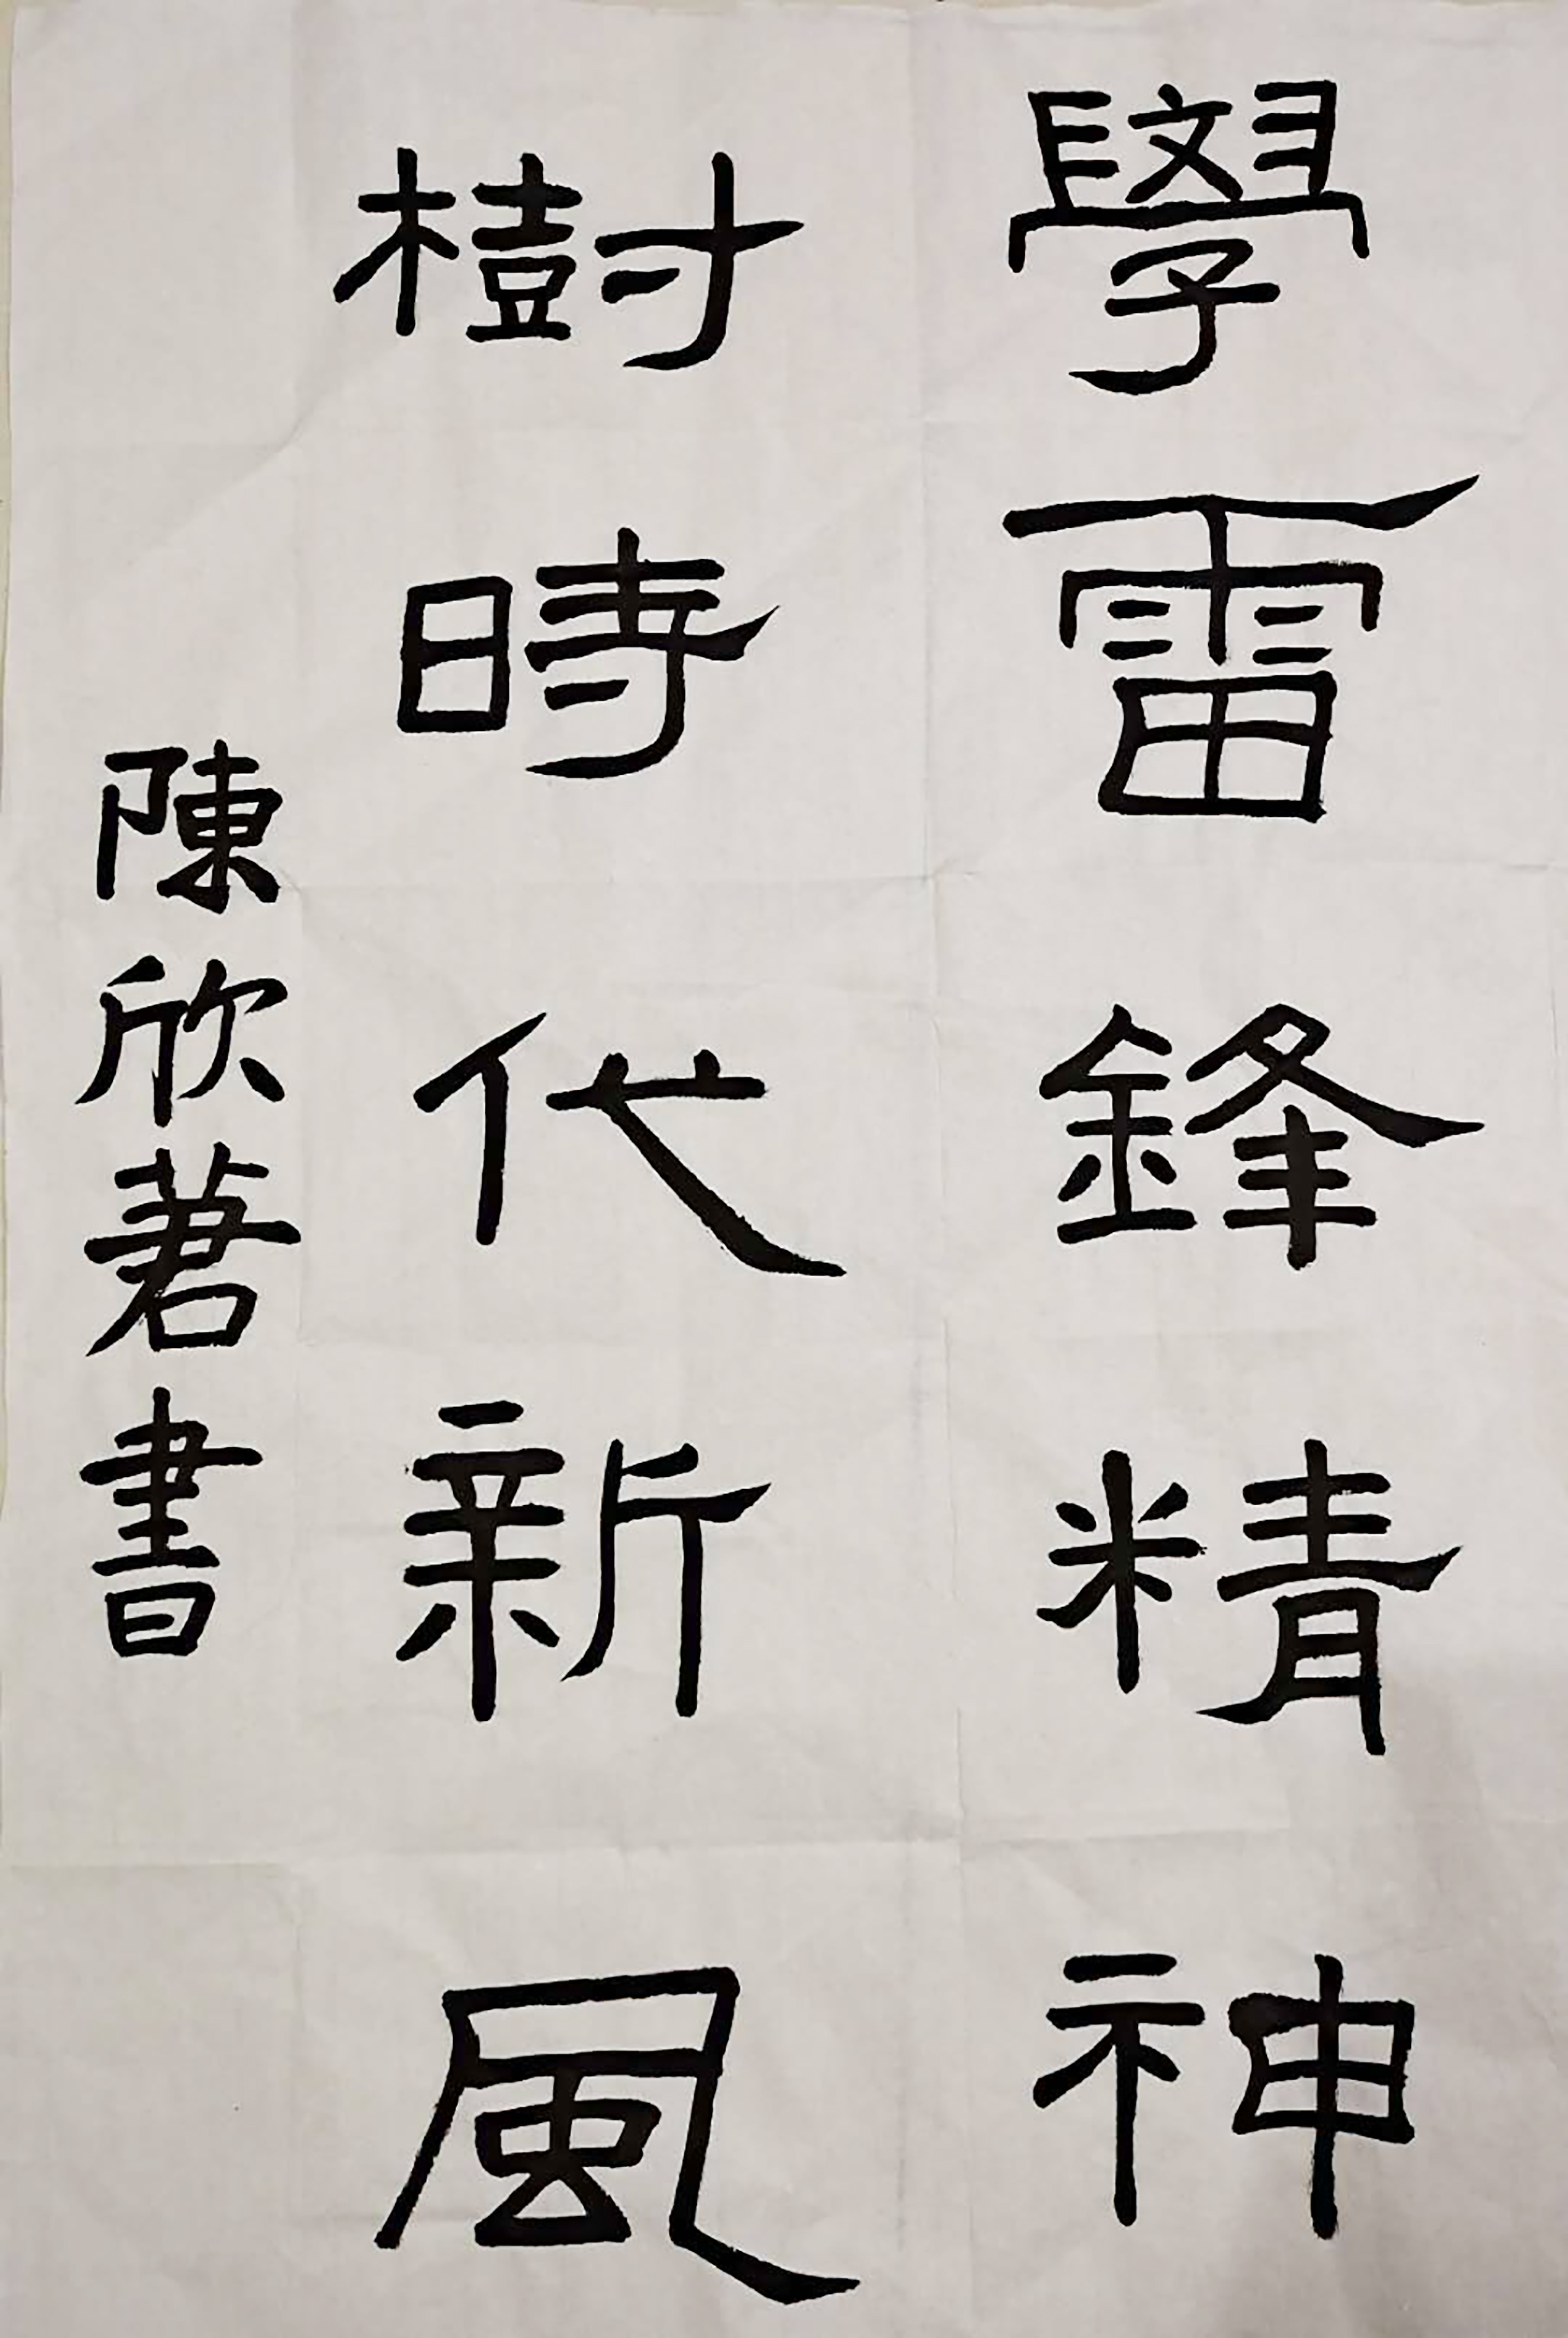 學雷鋒精神
樹時代新風
陳欣莙書